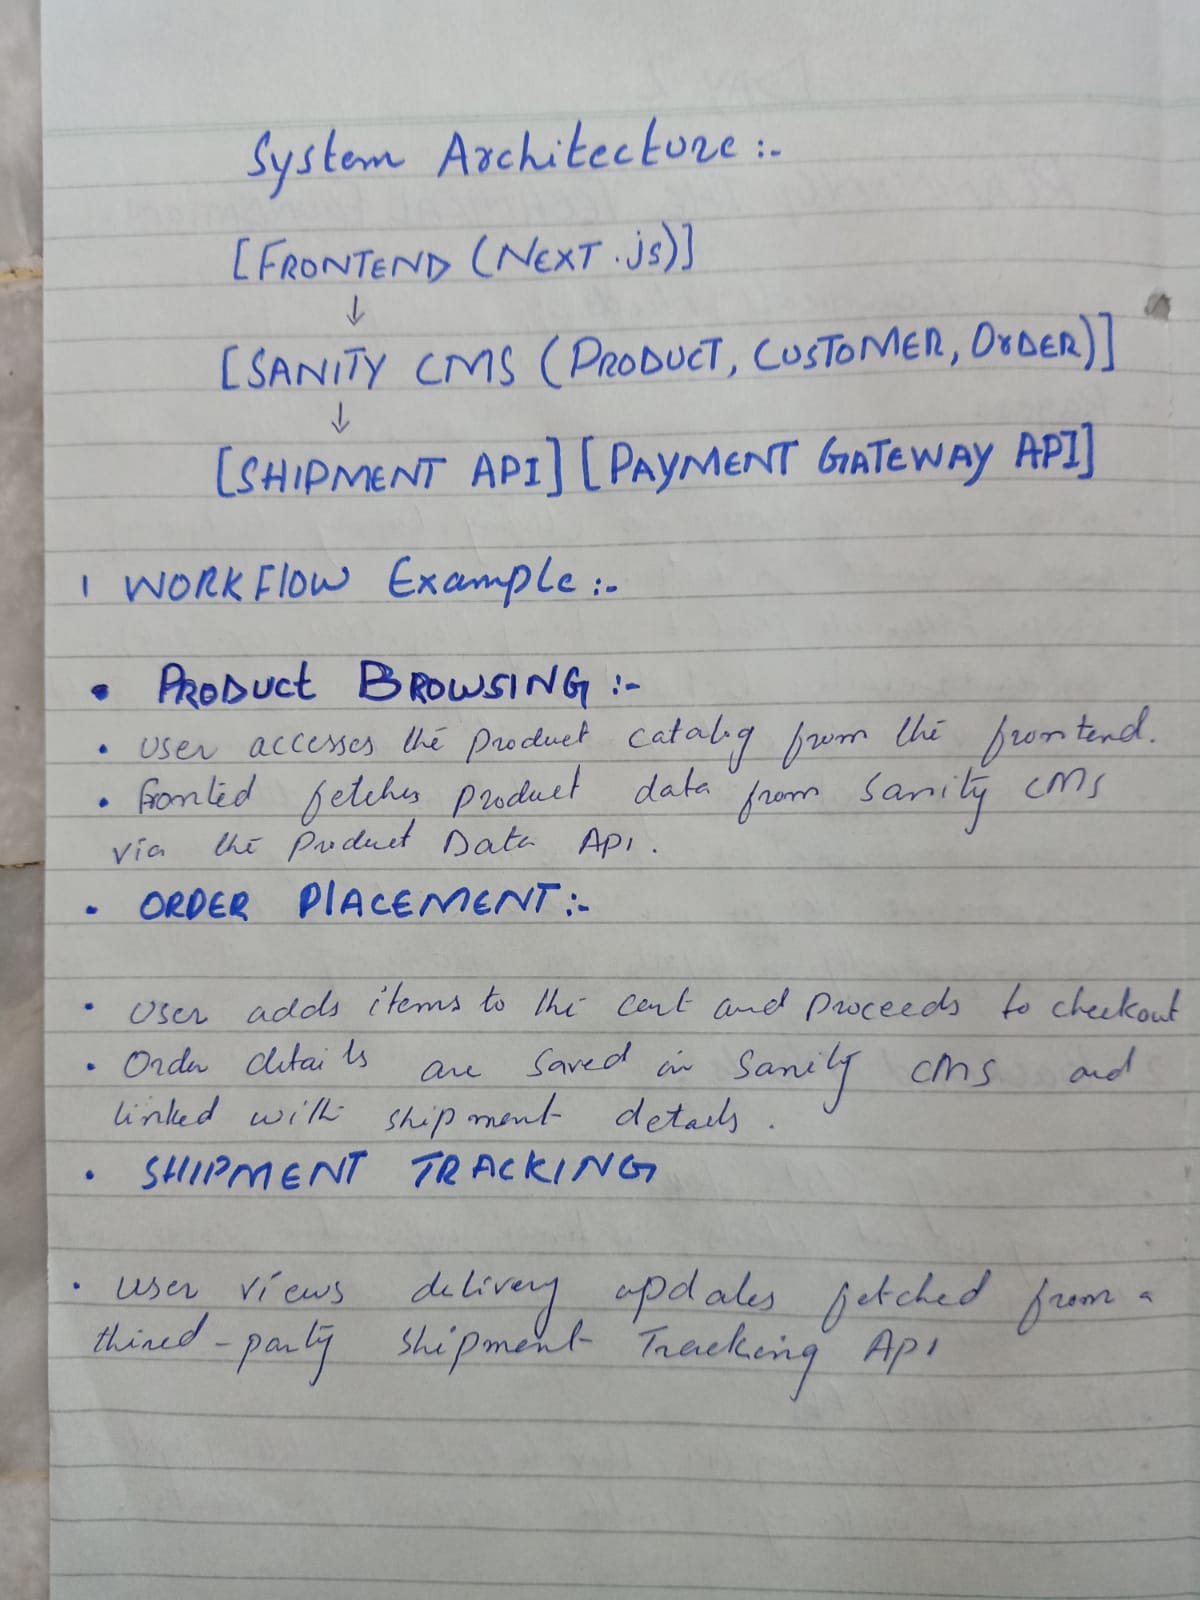 System Architecture :-
[FRONTEND (NEXT.js)]
↓
[SANITY CMS (PRODUCT, CUSTOMER, OrDER)]
↓
[SHIPMENT API] [PAYMENT GATEWAY API]
1 WORKFlOW Example :-
• PRODUCt BROWSING :-
• User accesses the product catalog from the frontend.
• fronted fetches product data from Sanity CMS
via the Product Data Api.
• ORDER PlACEMENT :-
• User adds items to the cart and proceeds to checkout
• Order details are saved in Sanity CMS and
linked with shipment details.
• SHIPMENT TRACKING
• User views delivery updates fetched from a
thired-party Shipment Tracking Api